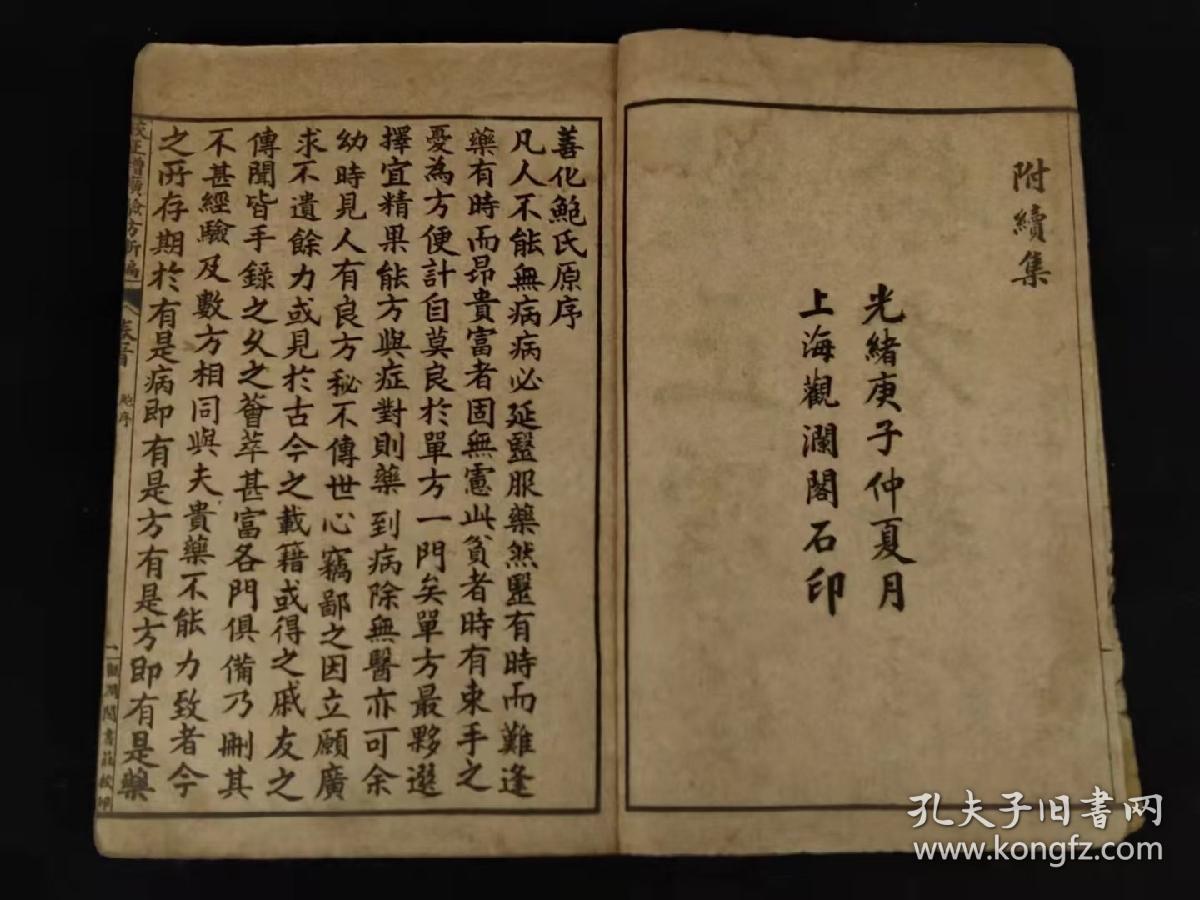 附續集
光緒庚子仲夏月
上海觀瀾閣石印
善化鮑氏原序
凡人不能無病病必延毉服藥然毉有時而難逢
藥有時而昂貴富者固無憲此貧者時有束手之
憂為方便計自莫良於單方一門矣單方最夥選
擇宜精果能方與症對則藥到病除無醫亦可余
幼時見人有良方秘不傳世心竊鄙之因立願廣
求不遺餘力或見於古今之載籍或得之戚友之
傳聞皆手錄之久之薈萃甚富各門俱備乃刪其
不甚經驗及數方相同與夫貴藥不能力致者今
之所存期於有是病即有是方有是方即有是藥
驗方新編
卷首
鮑序
一
觀瀾閣書莊校印
孔夫子旧书网
www.kongfz.com